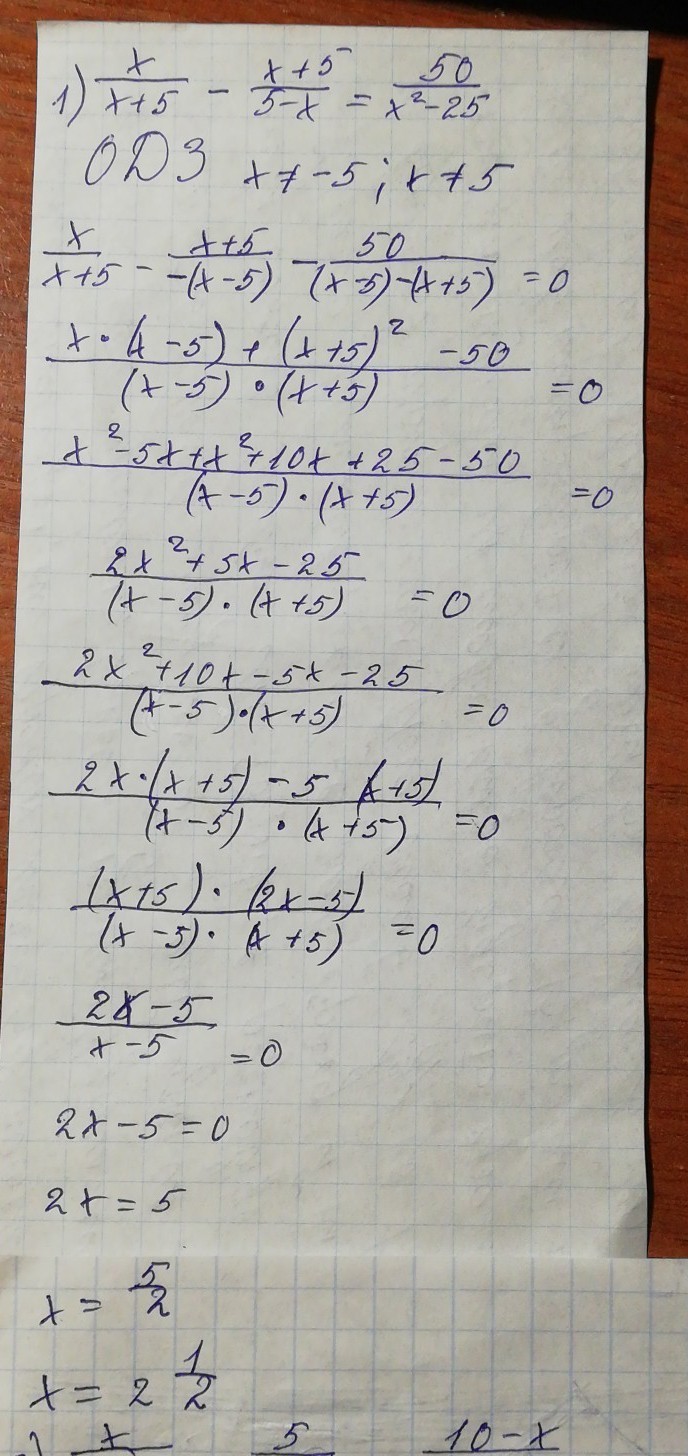 1) x/(x+5) - (x+5)/(5-x) = 50/(x²-25)
ОДЗ x≠-5; x≠5
x/(x+5) - (x+5)/(-(x-5)) - 50/((x-5)-(x+5)) = 0
(x·(x-5)+(x+5)² -50)/((x-5)·(x+5)) = 0
(x²-5x+x²+10x+25-50)/((x-5)·(x+5)) = 0
(2x²+5x-25)/((x-5)·(x+5)) = 0
(2x²+10x-5x-25)/((x-5)·(x+5)) = 0
(2x·(x+5)-5(x+5))/((x-5)·(x+5)) = 0
((x+5)·(2x-5))/((x-5)·(x+5)) = 0
(2x-5)/(x-5) = 0
2x-5=0
2x=5
x = 5/2
x = 2 1/2
x 5 10-x